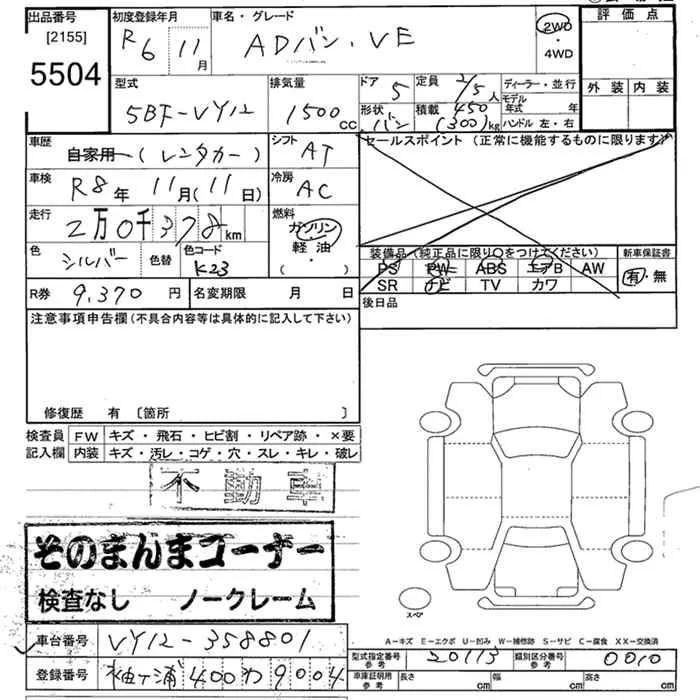 出品番号
[2155]
5504
初度登録年月
R6 11月
車名・グレード
ADバン・VE
2WD
・
4WD
評価点
外装 内装
型式
5BF-VY12
排気量
1500cc
ドア 5
形状 バン
定員 2/5人
積載 450
(300)kg
ディーラー・並行
モデル年式 年
ハンドル 左・右
車歴
自家用 (レンタカー)
シフト AT
セールスポイント (正常に機能するものに限ります)
車検 R8年 11月(11日)
冷房 AC
走行 2万0千378km
燃料
ガソリン
軽油
( )
色 シルバー
色替
色コード
K23
装備品(純正品に限り○をつけてください)
PS PW ABS エアB AW
SR ナビ TV カワ
新車保証書
有・無
R券 9,370円
名変期限 月 日
後日品
注意事項申告欄(不具合内容等は具体的に記入して下さい)
修復歴 有 〔箇所 〕
検査員 FW キズ・飛石・ヒビ割・リペア跡・×要
記入欄 内装 キズ・汚レ・コゲ・穴・スレ・キレ・破レ
不動車
そのまんまコーナー
検査なし ノークレーム
スペア
A-キズ E-エクボ U-凹み W-補修跡 S-サビ C-腐食 XX-交換済
車台番号 VY12-358801
登録番号 袖ヶ浦400わ9004
型式指定番号
参考
20113
類別区分番号
参考
0010
車庫証明用
参考
長さ cm 幅 cm 高さ cm